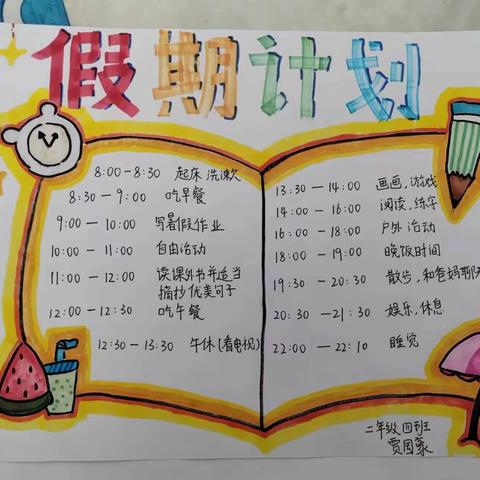 假期计划
8:00-8:30 起床 洗漱
8:30-9:00 吃早餐
9:00-10:00 写暑假作业
10:00-11:00 自由活动
11:00-12:00 读课外书并适当
摘抄优美句子
12:00-12:30 吃午餐
12:30-13:30 午休(看电视)
13:30-14:00 画画,游戏
14:00-16:00 阅读,练字
16:00-18:00 户外活动
18:00-19:00 晚饭时间
19:30-20:30 散步,和爸妈聊天
20:30-21:30 娱乐,休息
22:00-22:10 睡觉
二年级四班